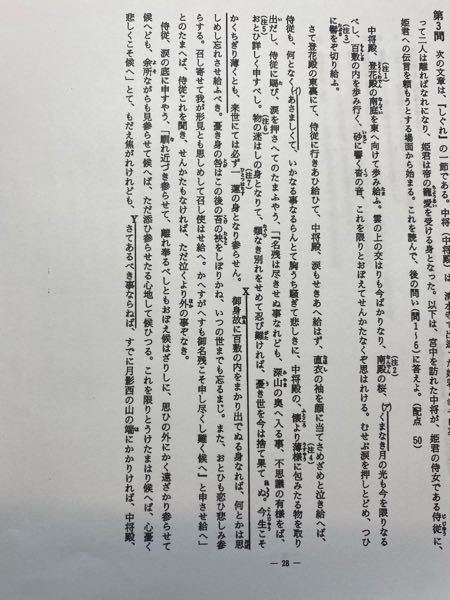 第3問　次の文章は、『しぐれ』の一節である。
って二人は離ればなれになり、姫君は帝の寵愛を受ける身となった。以下は、宮中を訪れた中将が、姫君の侍女である侍従に、
姫君への伝言を頼もうとする場面から始まる。これを読んで、後の問い(問1～6)に答えよ。(配点　50)
中将殿、登花殿の南庭を東へ向けて歩み給ふ。雲の上の交はりも今ばかりなり、南殿の桜、くまなき月の光も今を限りなる
べし、百敷の内を歩み行く、砂に響く沓の音、これを限りとおぼえてせんかたなくぞ思はれける。むせぶ涙を押しとどめ、つひ
に髻をぞ切り給ふ。
さて登花殿の東裏にて、侍従に行きあひ給ひて、中将殿、涙もせきあへ給はず、直衣の袖を顔に当てさめざめと泣き給へば、
侍従も、何となくあさましくて、いかなる事なるらんとて胸うち騒ぎて悲しきに、中将殿の、懐より薄様に包みたる物を取り
出だし、侍従に賜び、涙を押さへてのたまふやう、「名残は尽きせぬ事なれども、深山の奥へ入る事、不思議の有様をば、
おとひ詳しく申すべし。物の迷はしの身となりて、類なき別れをせめて忍び難ければ、憂き世を今は捨て果てぬ。今生こそ
かくちぎり薄くとも、来世にては必ず一蓮の身となり参らせん。X御身故に百敷の内をまかり出でぬる身なれば、何とかは思
しめし忘れさせ給ふべき。憂き身の咎はこの後の苔の袂をしぼりかね、いつの世までも忘るまじ。また、おとひも恋ひ悲しみ参
らする。召し寄せて我が形見とも思しめして召し使はせ給へ。かへすがへすも御名残こそ申し尽くし難く候へ」と申させ給へ」
とのたまへば、侍従これを聞き、せんかたもなければ、ただ泣くより外の事ぞなき。
侍従、涙の底に申すやう、「馴れ近づき参らせて、離れ奉るべしともおぼえ候はざりしに、思ひの外にかく遠ざかり参らせて
候へども、余所ながらも見参らせて候へば、ただ添ひ参らせたる心地して候ひつる。これを限りとうけたまはり候へば、心憂く
悲しくこそ候へ」とて、もだえ焦がれけれども、Yさてあるべき事ならねば、すでに月影西の山の端にかかりければ、中将殿、
— 28 —